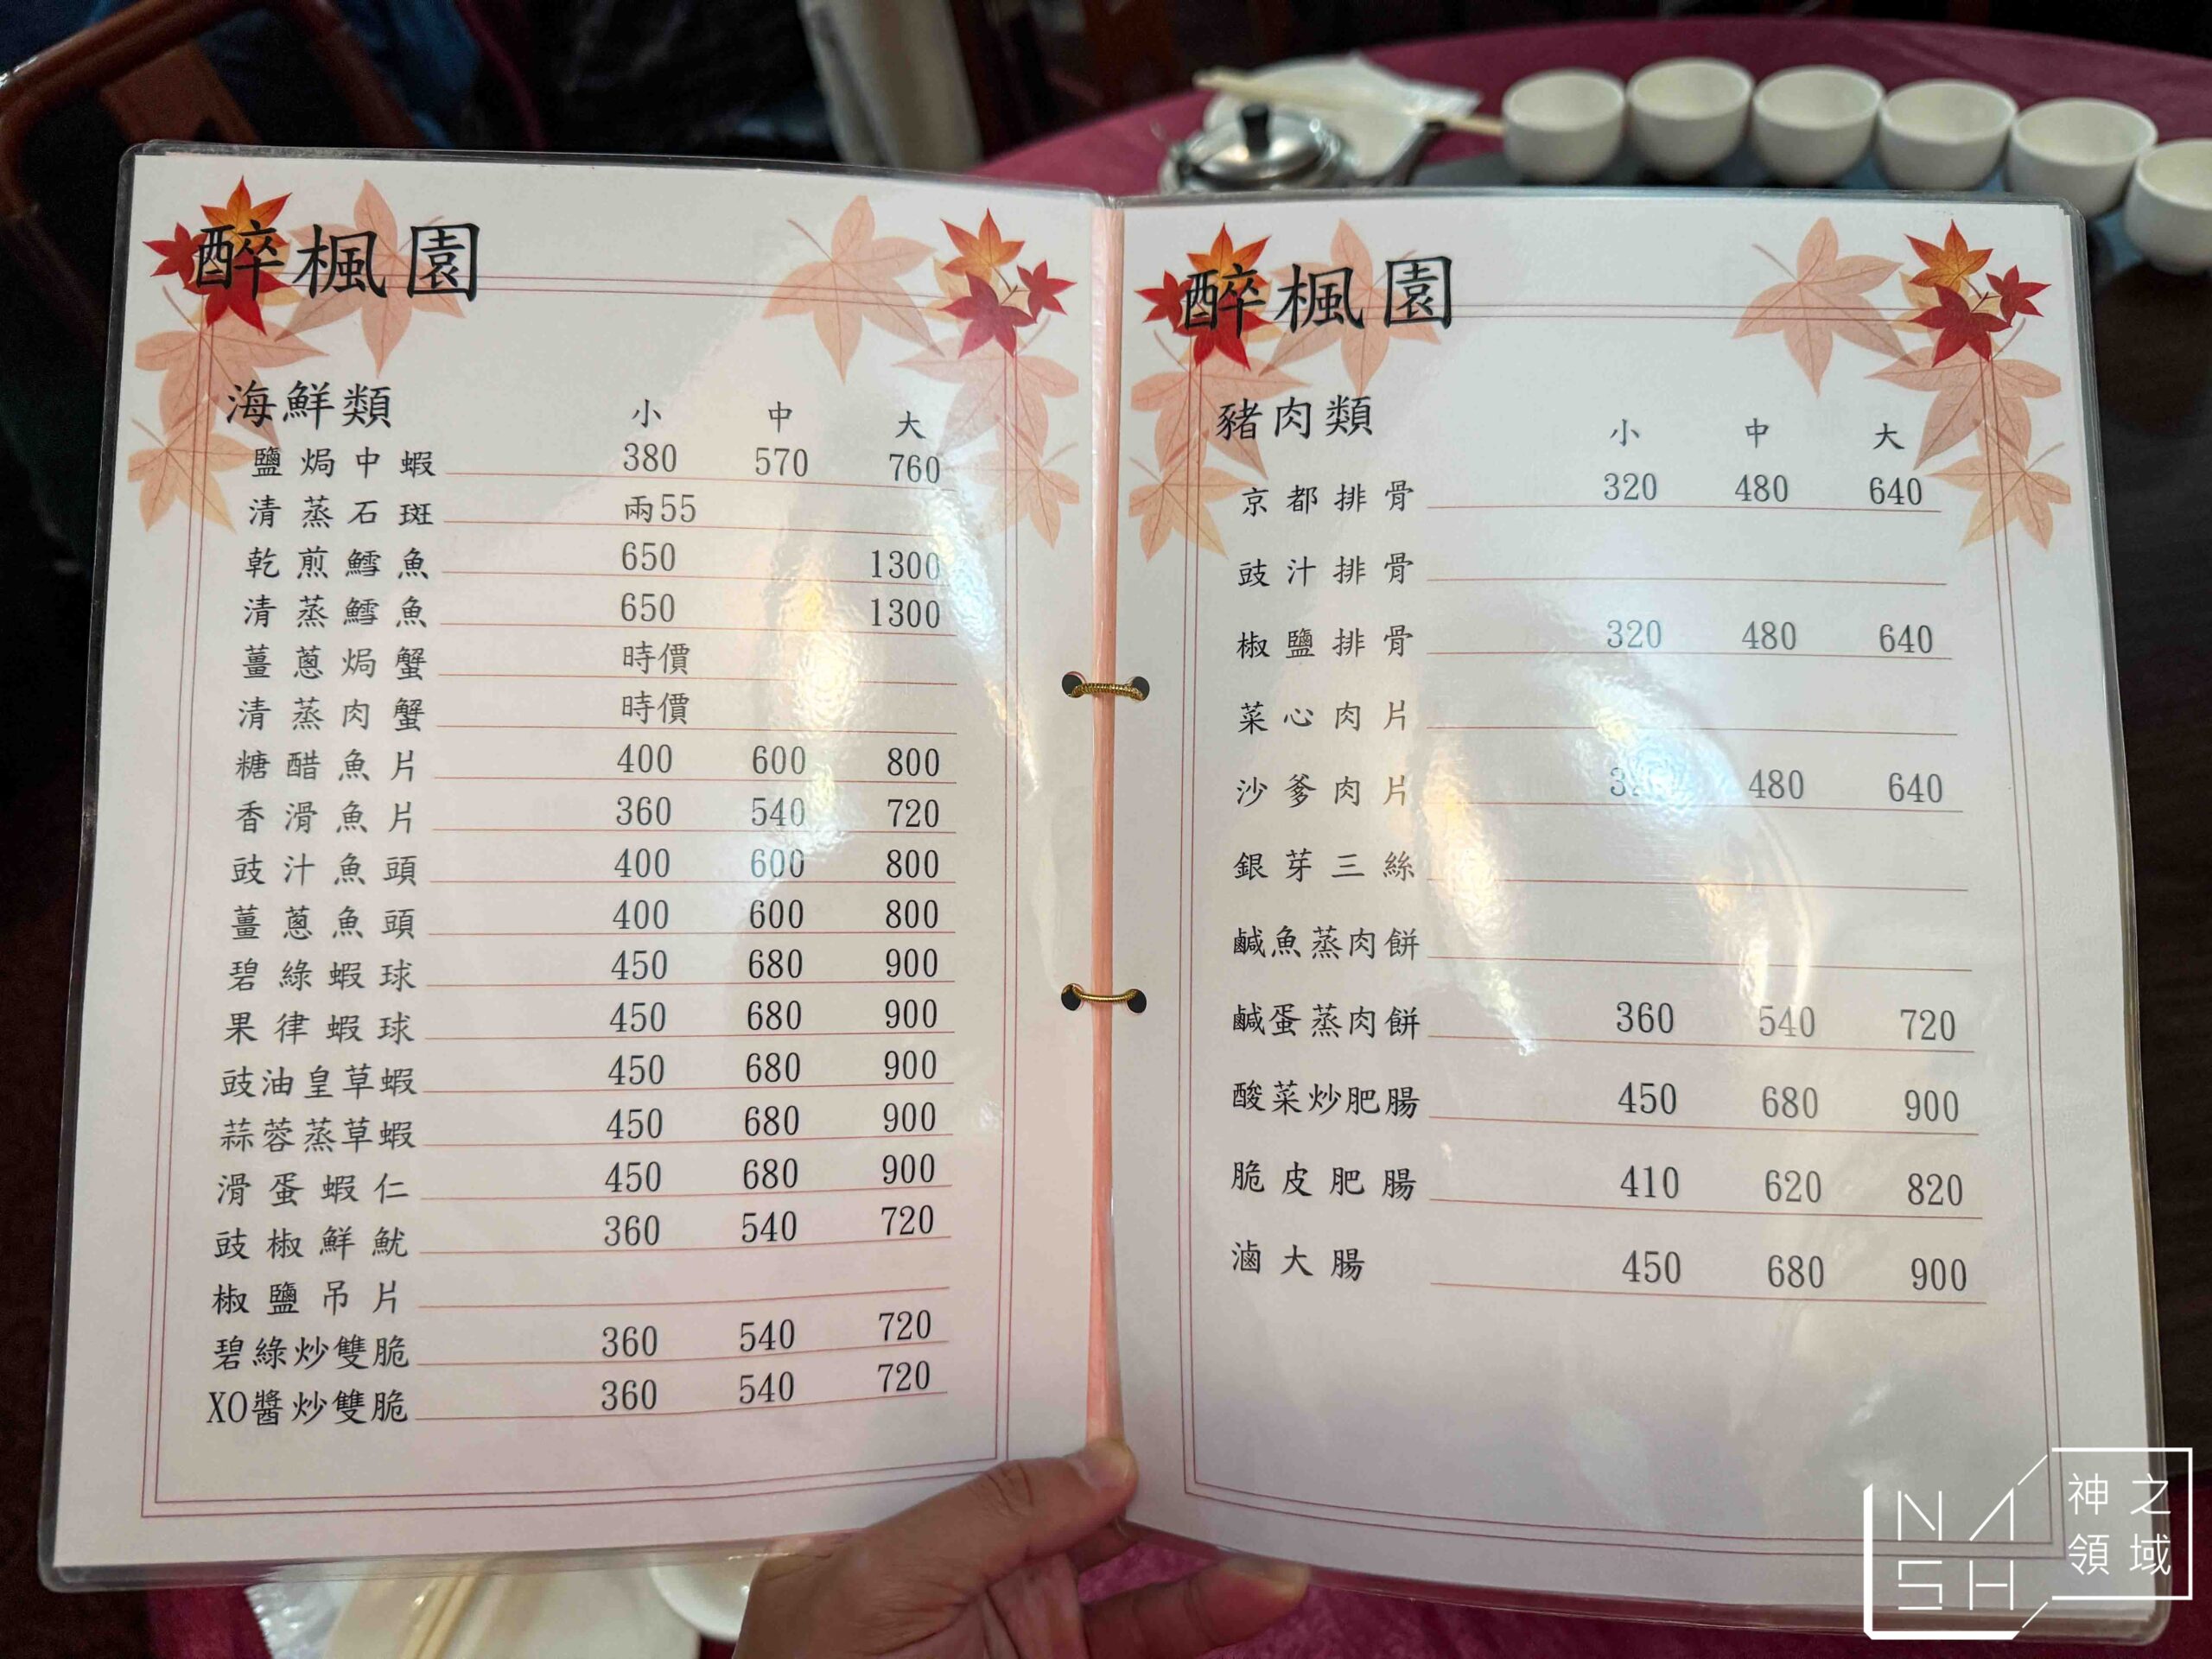 醉楓園
海鮮類 小 中 大
鹽焗中蝦 380 570 760
清蒸石斑 兩55
乾煎鱈魚 650 1300
清蒸鱈魚 650 1300
薑蔥焗蟹 時價
清蒸肉蟹 時價
糖醋魚片 400 600 800
香滑魚片 360 540 720
豉汁魚頭 400 600 800
薑蔥魚頭 400 600 800
碧綠蝦球 450 680 900
果律蝦球 450 680 900
豉油皇草蝦 450 680 900
蒜蓉蒸草蝦 450 680 900
滑蛋蝦仁 450 680 900
豉椒鮮魷 360 540 720
椒鹽吊片
碧綠炒雙脆 360 540 720
XO醬炒雙脆 360 540 720
醉楓園
豬肉類 小 中 大
京都排骨 320 480 640
豉汁排骨
椒鹽排骨 320 480 640
菜心肉片
沙爹肉片 480 640
銀芽三絲
鹹魚蒸肉餅
鹹蛋蒸肉餅 360 540 720
酸菜炒肥腸 450 680 900
脆皮肥腸 410 620 820
滷大腸 450 680 900
NASH
神之領域